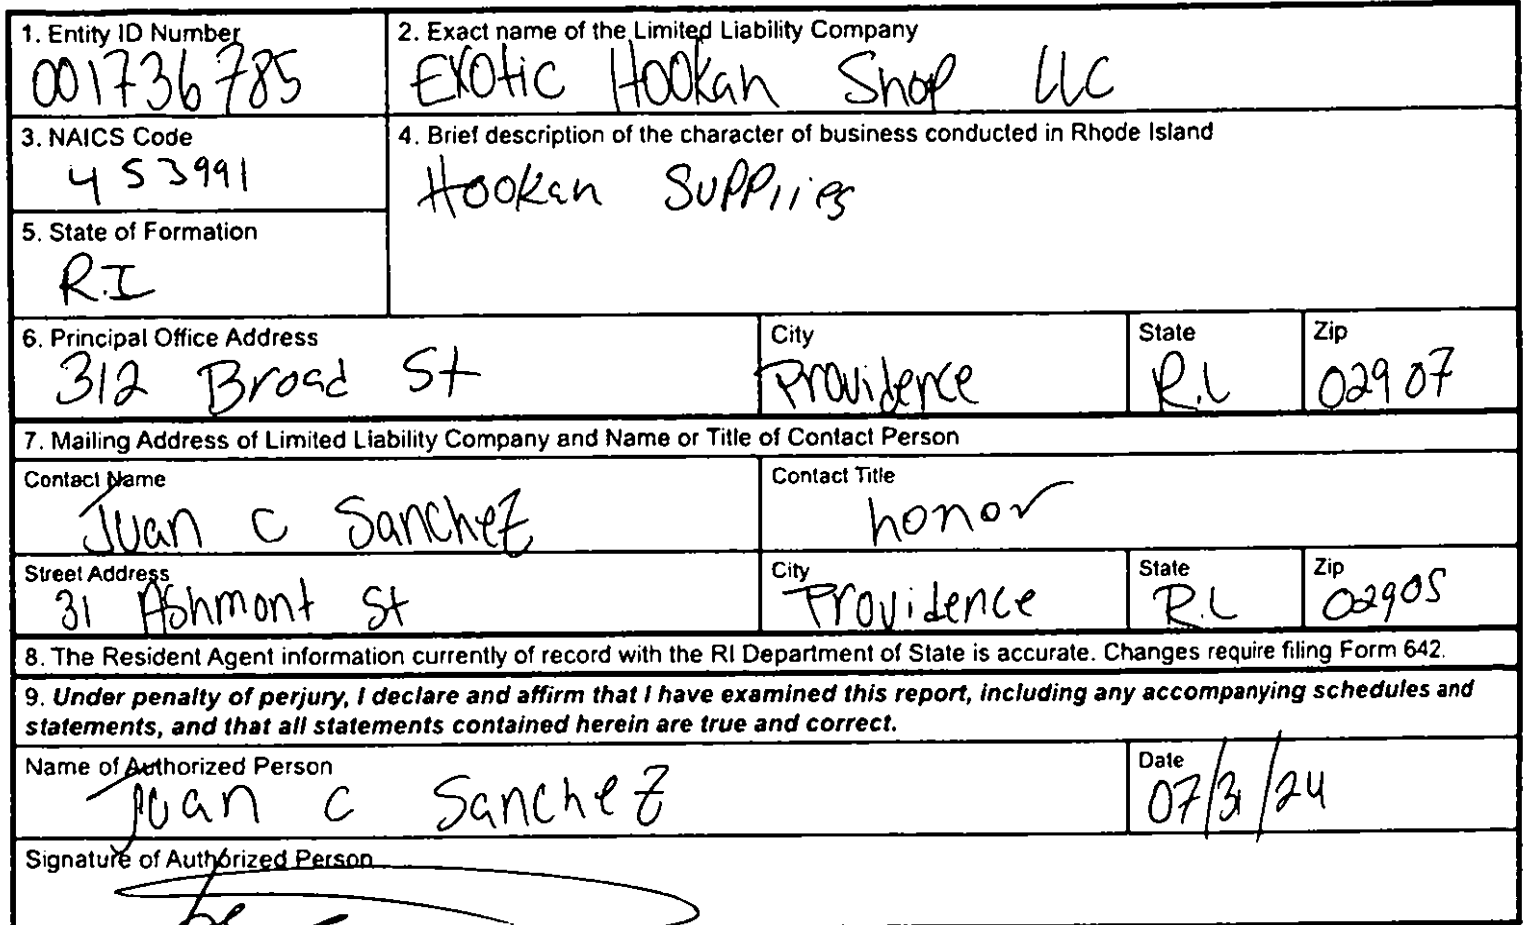 1. Entity ID Number
001736785
2. Exact name of the Limited Liability Company
Exotic Hookah Shop LLC
3. NAICS Code
453991
4. Brief description of the character of business conducted in Rhode Island
Hookah Supplies
5. State of Formation
R.I
6. Principal Office Address
312 Broad St
City
Providence
State
R.I
Zip
02907
7. Mailing Address of Limited Liability Company and Name or Title of Contact Person
Contact Name
Juan C Sanchez
Contact Title
honor
Street Address
31 Ashmont St
City
Providence
State
R.I
Zip
02905
8. The Resident Agent information currently of record with the RI Department of State is accurate. Changes require filing Form 642.
9. Under penalty of perjury, I declare and affirm that I have examined this report, including any accompanying schedules and
statements, and that all statements contained herein are true and correct.
Name of Authorized Person
Juan C Sanchez
Date
07/31/24
Signature of Authorized Person